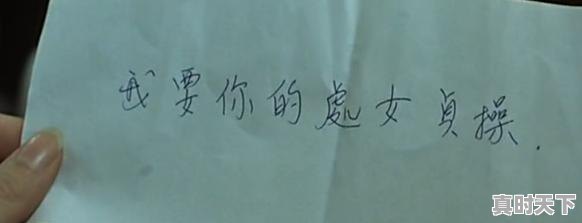 我要你的處女貞操.
真时天下